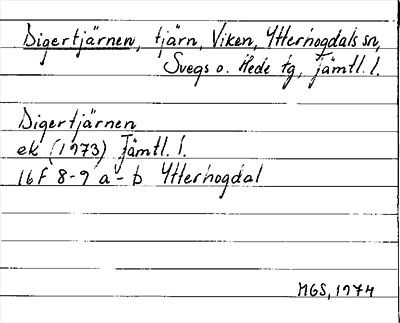 Digertjärnen, tjärn, Viken, Ytterhogdals sn,
Svegs o. Hede tg, Jämtl. l.
Digertjärnen
ek (1973) Jämtl. l.
16F 8-9 a-b Ytterhogdal
MGS, 1974